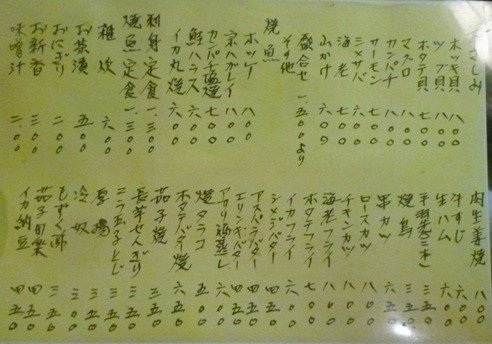 おさしみ
ホッキ貝 八〇〇
ツブ貝 八〇〇
ホタテ貝 七〇〇
マグロ 八〇〇
カンパチ 八〇〇
サーモン 七〇〇
〆サバ 六〇〇
海老 七〇〇
山かけ 六〇〇
盛合せ 一五〇〇より
その他
焼魚
ホッケ 八〇〇
宗八ガレイ 八〇〇
カンパチ塩焼 七〇〇
鮭ハラス 六〇〇
イカ丸焼 六〇〇
刺身定食 一三〇〇
焼魚定食 一三〇〇
雑炊 六〇〇
お茶漬 五〇〇
おにぎり
お新香 三〇〇
味噌汁 二〇〇
肉生姜焼 八〇〇
牛すじ 六〇〇
生ハム 六〇〇
手羽先(三本) 三五〇
焼鳥 三五〇
串カツ 六五〇
ロースカツ 八〇〇
チキンカツ 八〇〇
海老フライ 八〇〇
ホタテフライ 七〇〇
イカフライ 六〇〇
シメジバター 四五〇
アスパラバター 四五〇
エリンギバター 四五〇
アサリ酒蒸し 六〇〇
焼タラコ 五〇〇
ホタテバター焼 六五〇
茄子焼 四五〇
長芋せんぎり 三五〇
ニラ玉子とじ 三五〇
厚揚 三五〇
冷奴 三五〇
もずく酢 三五〇
茄子田楽 四五〇
イカ納豆 四五〇